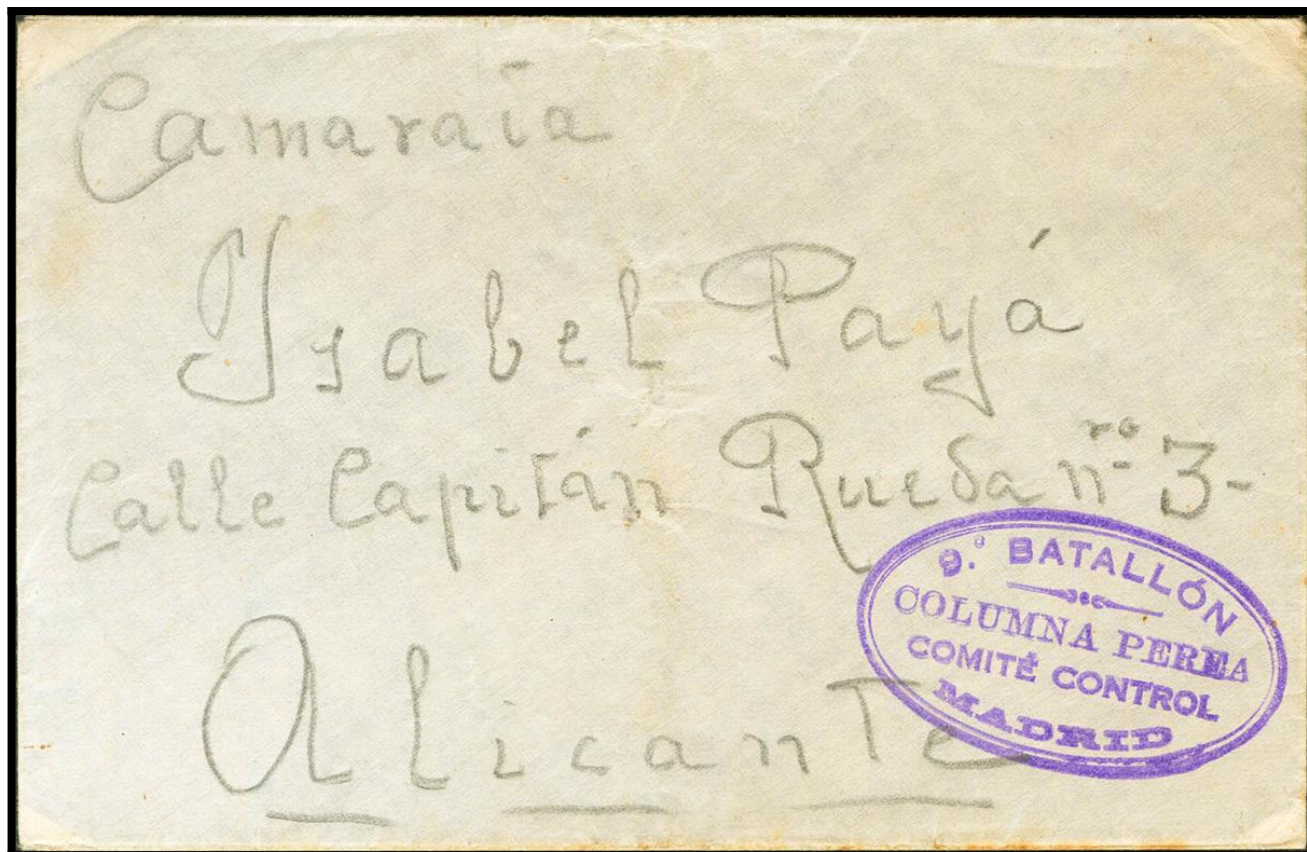 Camaraia
Ysabel Payá
Calle Capitán Rueda nro 3-
Alicante
9.º BATALLÓN
COLUMNA PEREA
COMITÉ CONTROL
MADRID